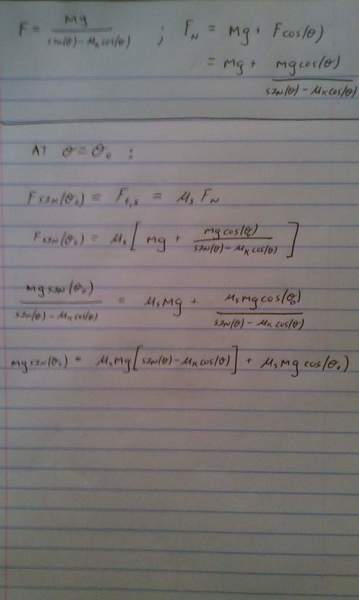 F = mg / (sin(θ) − μₖcos(θ)) ; F_N = mg + Fcos(θ)
= mg + mgcos(θ) / (sin(θ) − μₖcos(θ))
At θ = θ₀ :
Fsin(θ₀) = F_f,s = μₛF_N
Fsin(θ₀) = μₛ[mg + mgcos(θ₀) / (sin(θ) − μₖcos(θ))]
mgsin(θ₀) / (sin(θ) − μₖcos(θ)) = μₛmg + μₛmgcos(θ₀) / (sin(θ) − μₖcos(θ))
mgsin(θ₀) = μₛmg[sin(θ) − μₖcos(θ)] + μₛmgcos(θ₀)